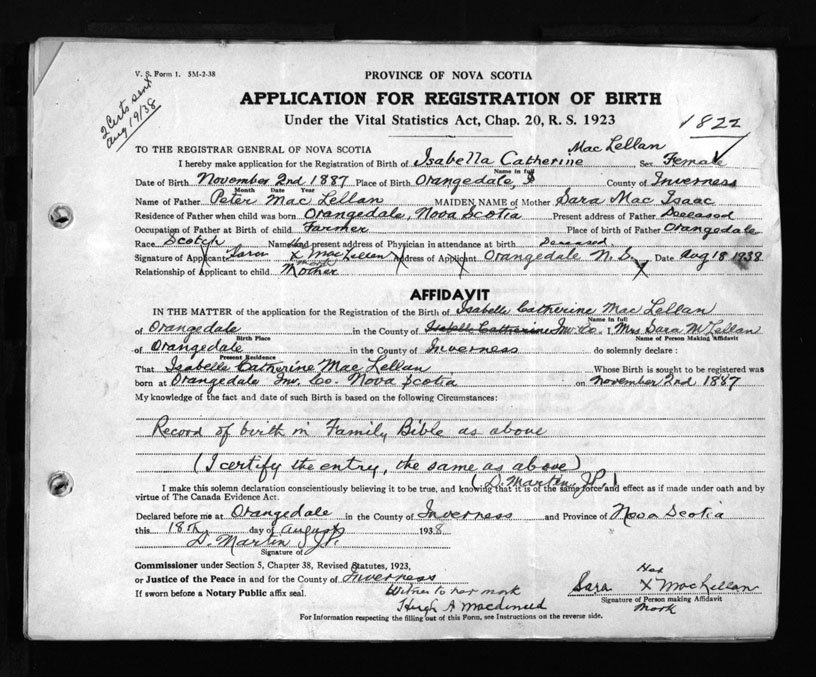 V. S. Form 1. 5M-2-38
2 Certs sent
Aug 19/38
PROVINCE OF NOVA SCOTIA
APPLICATION FOR REGISTRATION OF BIRTH
Under the Vital Statistics Act, Chap. 20, R. S. 1923
1822
TO THE REGISTRAR GENERAL OF NOVA SCOTIA
I hereby make application for the Registration of Birth of Isabella Catherine Mac Lellan Sex Female
Name in full
Date of Birth November 2nd 1887 Place of Birth Orangedale, County of Inverness
Month Date Year
Name of Father Peter Mac Lellan MAIDEN NAME of Mother Sara Mac Isaac
Residence of Father when child was born Orangedale, Nova Scotia Present address of Father Deceased
Occupation of Father at Birth of child Farmer Place of birth of Father Orangedale
Race Scotch Name and present address of Physician in attendance at birth Deceased
Signature of Applicant Sara X MacLellan Address of Applicant Orangedale N. S. Date Aug 18 1938
mark
Relationship of Applicant to child Mother
AFFIDAVIT
IN THE MATTER of the application for the Registration of the Birth of Isabelle Catherine Mac Lellan
Name in full
of Orangedale in the County of Isabelle Catherine Inv. Co. I, Mrs Sara McLellan
Birth Place Name of Person Making Affidavit
of Orangedale in the County of Inverness do solemnly declare:
Present Residence
That Isabelle Catherine Mac Lellan Whose Birth is sought to be registered was
born at Orangedale Inv. Co. Nova Scotia on November 2nd 1887
My knowledge of the fact and date of such Birth is based on the following Circumstances:
Record of birth in Family Bible as above
(I certify the entry, the same as above)
(D. Martin J.P.)
I make this solemn declaration conscientiously believing it to be true, and knowing that it is of the same force and effect as if made under oath and by
virtue of The Canada Evidence Act.
Declared before me at Orangedale in the County of Inverness and Province of Nova Scotia
this 18th day of August 1938
D. Martin J.P.
Signature of
Commissioner under Section 5, Chapter 38, Revised Statutes, 1923,
or Justice of the Peace in and for the County of Inverness
If sworn before a Notary Public affix seal.
Witness to her mark
Hugh A Macdonald
Her
Sara X MacLellan
Signature of Person making Affidavit
Mark
For Information respecting the filling out of this Form, see Instructions on the reverse side.